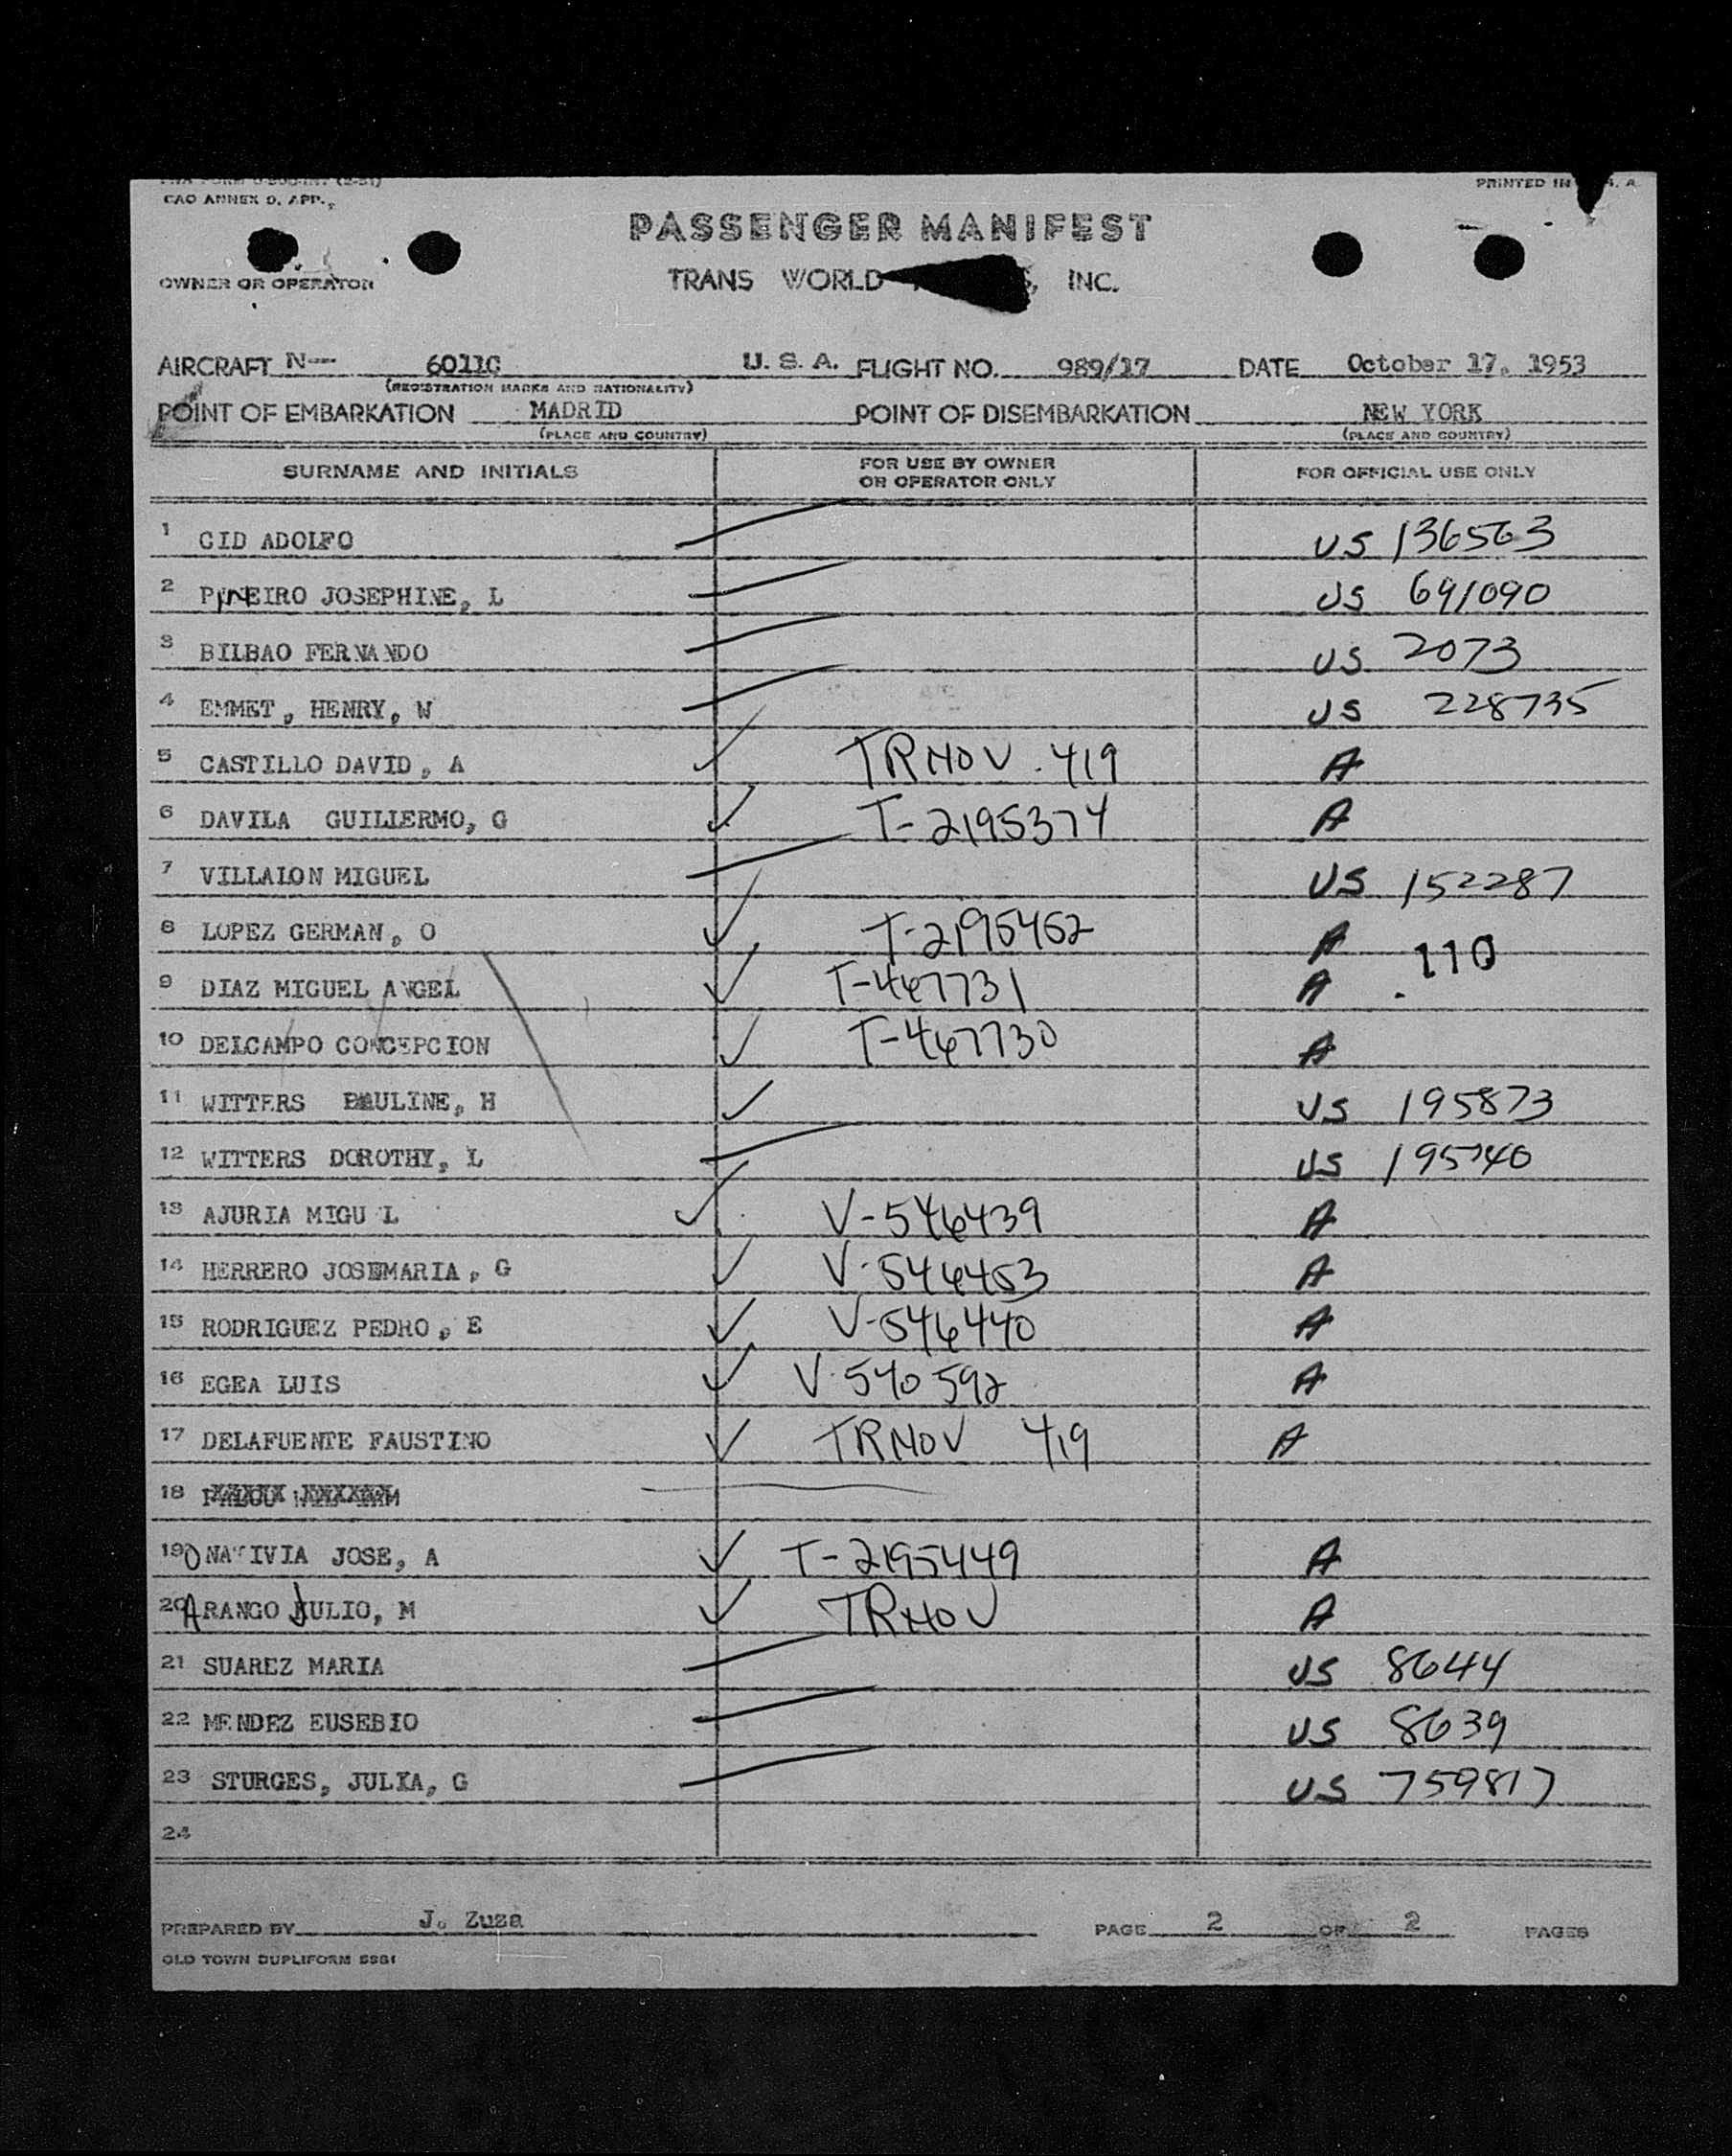 CAO ANNEX 9, APP.,
PRINTED IN
PASSENGER MANIFEST
OWNER OR OPERATOR
TRANS WORLD INC.
AIRCRAFT N— 6011C U. S. A. FLIGHT NO. 989/17 DATE October 17, 1953
(REGISTRATION MARKS AND NATIONALITY)
POINT OF EMBARKATION MADRID POINT OF DISEMBARKATION NEW YORK
(PLACE AND COUNTRY) (PLACE AND COUNTRY)
SURNAME AND INITIALS FOR USE BY OWNER OR OPERATOR ONLY FOR OFFICIAL USE ONLY
1 CID ADOLFO US 136563
2 PINEIRO JOSEPHINE, L US 691090
3 BILBAO FERNANDO US 2073
4 EMMET, HENRY, W US 228735
5 CASTILLO DAVID, A TRNOV. 419 A
6 DAVILA GUILLERMO, G T-2195374 A
7 VILLALON MIGUEL US 152287
8 LOPEZ GERMAN, O T-2195462 A
110
9 DIAZ MIGUEL ANGEL T-467731 A
10 DELCAMPO CONCEPCION T-467730 A
11 WITTERS PAULINE, H US 195873
12 WITTERS DOROTHY, L US 195740
13 AJURIA MIGU L V-546439 A
14 HERRERO JOSEMARIA, G V-546453 A
15 RODRIGUEZ PEDRO, E V-546440 A
16 EGEA LUIS V-540592 A
17 DELAFUENTE FAUSTINO TRNOV 419 A
18
19 ONATIVIA JOSE, A T-2195449 A
20 ARANGO JULIO, M TRNOV A
21 SUAREZ MARIA US 8644
22 MENDEZ EUSEBIO US 8639
23 STURGES, JULIA, G US 759817
24
PREPARED BY J. Zuza PAGE 2 OF 2 PAGES
OLD TOWN DUPLIFORM 5581